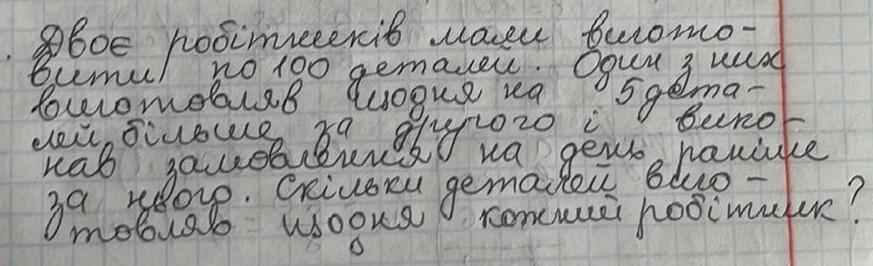 Двоє робітників мали вигото-
вити по 100 деталей. Один з них
виготовляв щодня на 5 дета-
лей більше за другого і вико-
нав замовлення на день раніше
за нього. Скільки деталей виго-
товляв щодня кожний робітник?